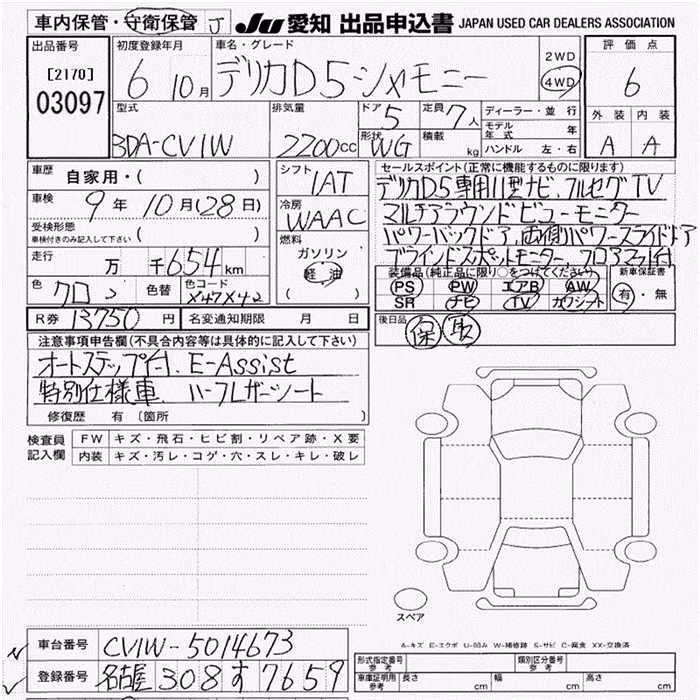 車内保管・守衛保管 J
JU 愛知 出品申込書 JAPAN USED CAR DEALERS ASSOCIATION
出品番号
[2170]
03097
初度登録年月
6 10月
車名・グレード
デリカD5シャモニー
2WD
4WD
評価点
6
外装 内装
A A
型式
3DA-CV1W
排気量
2200cc
ドア 5
形状 WG
定員 7人
積載 kg
ディーラー・並行
モデル年式 年
ハンドル 左・右
車歴 自家用・( )
車検 9年10月(28日)
受検形態
車検付きのみ記入して下さい ( )
走行 万 千654km
色 クロ 色替 色コード X47X42
シフト
IAT
冷房
WAAC
燃料
ガソリン
軽油
( )
セールスポイント(正常に機能するものに限ります)
デリカD5専用11型ナビ、フルセグTV
マルチアラウンドビューモニター
パワーバックドア、両側パワースライドドア
ブラインドスポットモニター、フロアマット付
装備品(純正品に限り○をつけてください)
PS PW エアB AW
SR ナビ TV カワシート
新車保証書
有・無
R券 13750円 名変通知期限 月 日
後日品 保 取
注意事項申告欄(不具合内容等は具体的に記入して下さい)
オートステップ付、E-Assist
特別仕様車、ハーフレザーシート
修復歴 有 〔箇所 〕
検査員記入欄
FW キズ・飛石・ヒビ割・リペア跡・X要
内装 キズ・汚レ・コゲ・穴・スレ・キレ・破レ
スペア
A-キズ E-エクボ U-凹み W-補修跡 S-サビ C-腐食 XX-交換済
車台番号 CV1W-5014673
登録番号 名古屋 308 す 7659
形式指定番号 参考 類別区分番号 参考
車庫証明用 参考 長さ cm 幅 cm 高さ cm